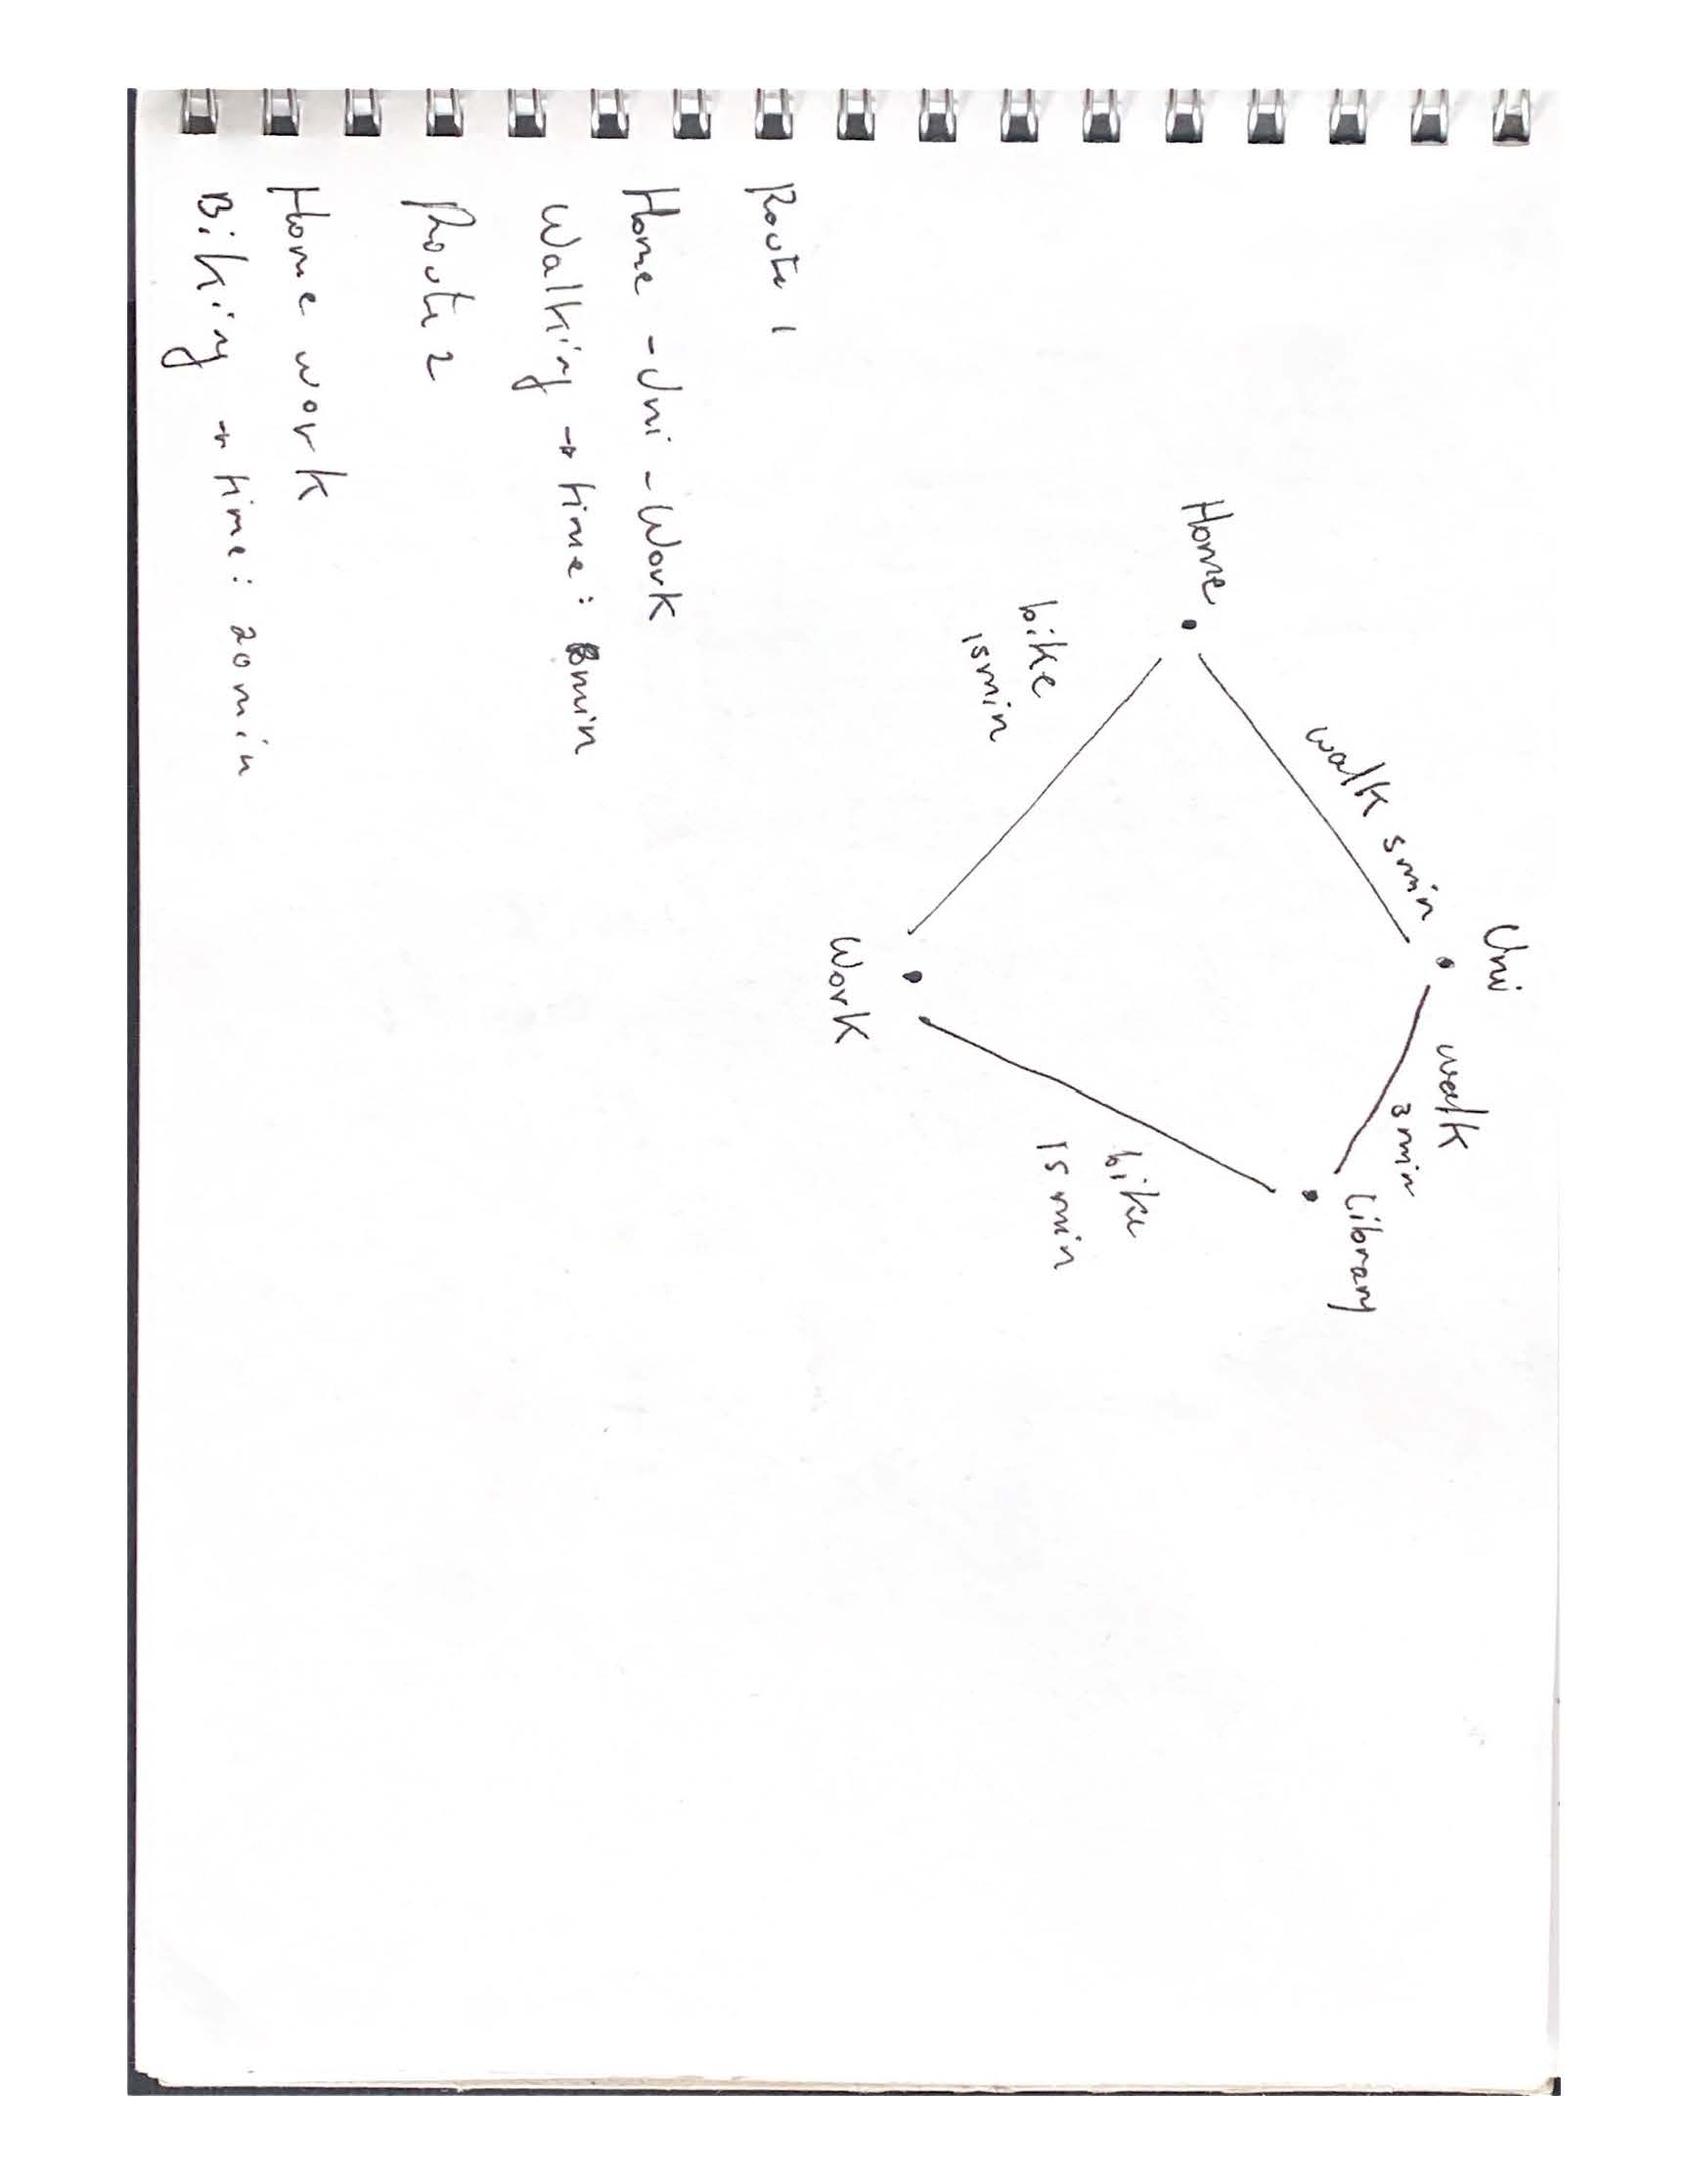 Uni
walk 5min
walk
3 min
Home
Library
bike
15min
bike
15 min
Work
Route 1
Home - Uni - Work
Walking → time: 8min
Route 2
Home work
Biking → time: 20 min